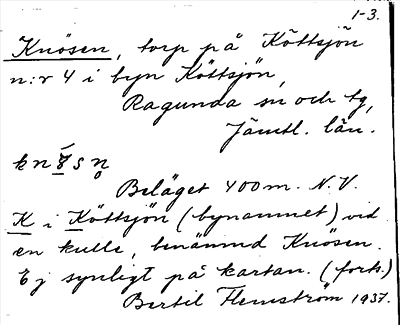 1-3.
Knösen, torp på Köttsjön
n:r 4 i byn Köttsjön,
Ragunda sn och tg,
Jämtl. län.
Beläget 400 m. N.V.
K i Köttsjön (bynamnet) vid
en kulle, benämnd Knösen.
Ej synligt på kartan. (forts.)
Bertil Flemström 1937.